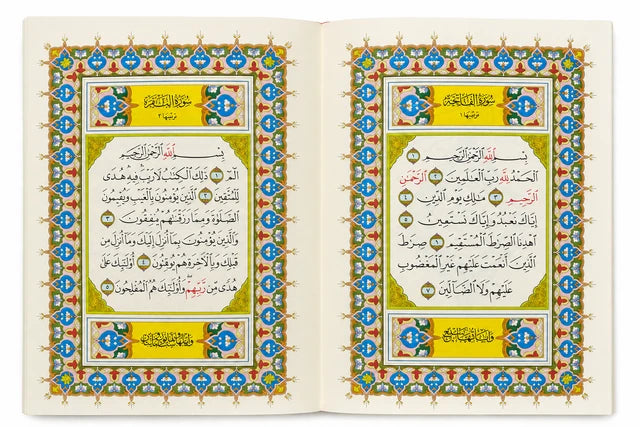 سُورَةُ الفَاتِحَةِ
تَرتيبها ١
بِسْمِ اللَّهِ الرَّحْمَٰنِ الرَّحِيمِ ١
الْحَمْدُ لِلَّهِ رَبِّ الْعَالَمِينَ ٢ الرَّحْمَٰنِ
الرَّحِيمِ ٣ مَالِكِ يَوْمِ الدِّينِ ٤
إِيَّاكَ نَعْبُدُ وَإِيَّاكَ نَسْتَعِينُ ٥
اهْدِنَا الصِّرَاطَ الْمُسْتَقِيمَ ٦ صِرَاطَ
الَّذِينَ أَنْعَمْتَ عَلَيْهِمْ غَيْرِ الْمَغْضُوبِ
عَلَيْهِمْ وَلَا الضَّالِّينَ ٧
سُورَةُ البَقَرَةِ
تَرتيبها ٢
بِسْمِ اللَّهِ الرَّحْمَٰنِ الرَّحِيمِ
الم ١ ذَٰلِكَ الْكِتَابُ لَا رَيْبَ فِيهِ هُدًى
لِلْمُتَّقِينَ ٢ الَّذِينَ يُؤْمِنُونَ بِالْغَيْبِ وَيُقِيمُونَ
الصَّلَوٰةَ وَمِمَّا رَزَقْنَاهُمْ يُنْفِقُونَ ٣
وَالَّذِينَ يُؤْمِنُونَ بِمَا أُنْزِلَ إِلَيْكَ وَمَا أُنْزِلَ مِنْ
قَبْلِكَ وَبِالْآخِرَةِ هُمْ يُوقِنُونَ ٤ أُولَٰئِكَ عَلَىٰ
هُدًى مِنْ رَبِّهِمْ وَأُولَٰئِكَ هُمُ الْمُفْلِحُونَ ٥